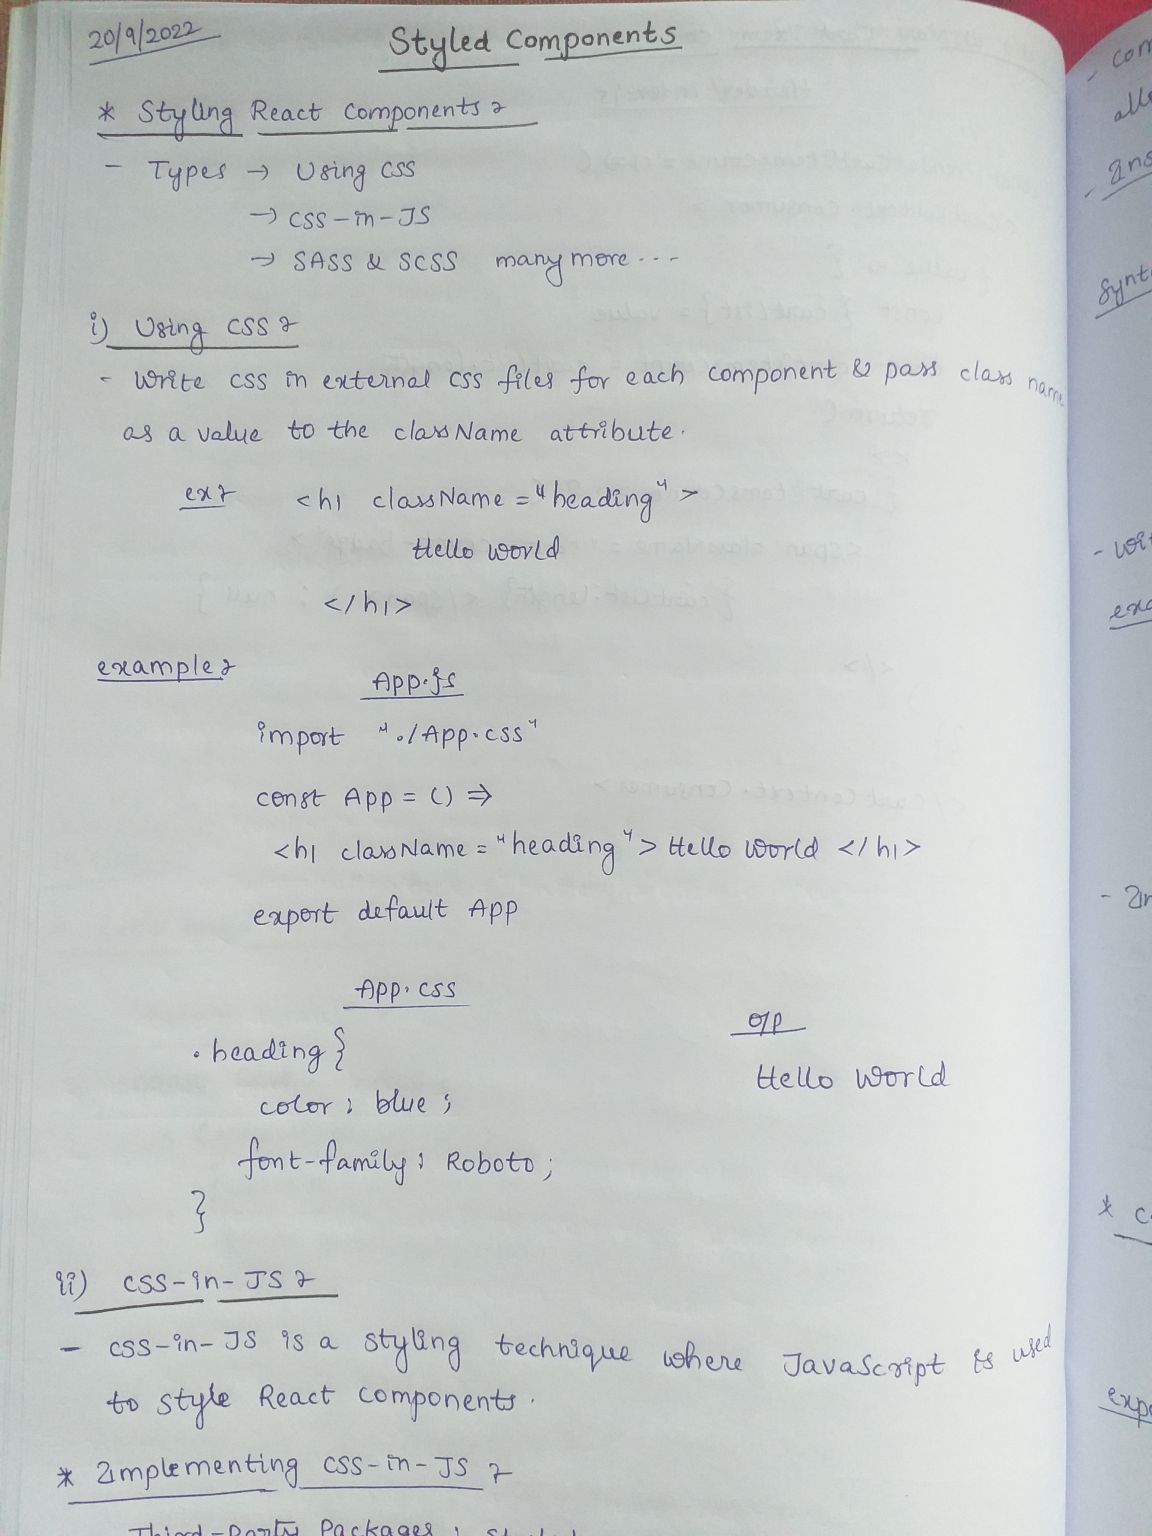 20/9/2022
Styled Components
* Styling React Components :-
- Types → Using CSS
→ CSS-in-JS
→ SASS & SCSS many more ...
i) Using CSS :-
- Write CSS in external CSS files for each component & pass class name
as a value to the className attribute.
ex :- <h1 className = "heading" >
Hello World
</h1>
example :-
App.js
import "./App.css"
const App = () =>
<h1 className = "heading" > Hello World </h1>
export default App
App.css
.heading {
color : blue ;
font-family : Roboto ;
}
o/p
Hello World
ii) CSS-in-JS :-
- CSS-in-JS is a styling technique where JavaScript is used
to style React components.
* Implementing CSS-in-JS :-
Third-Party Packages :
com
Synt
* C